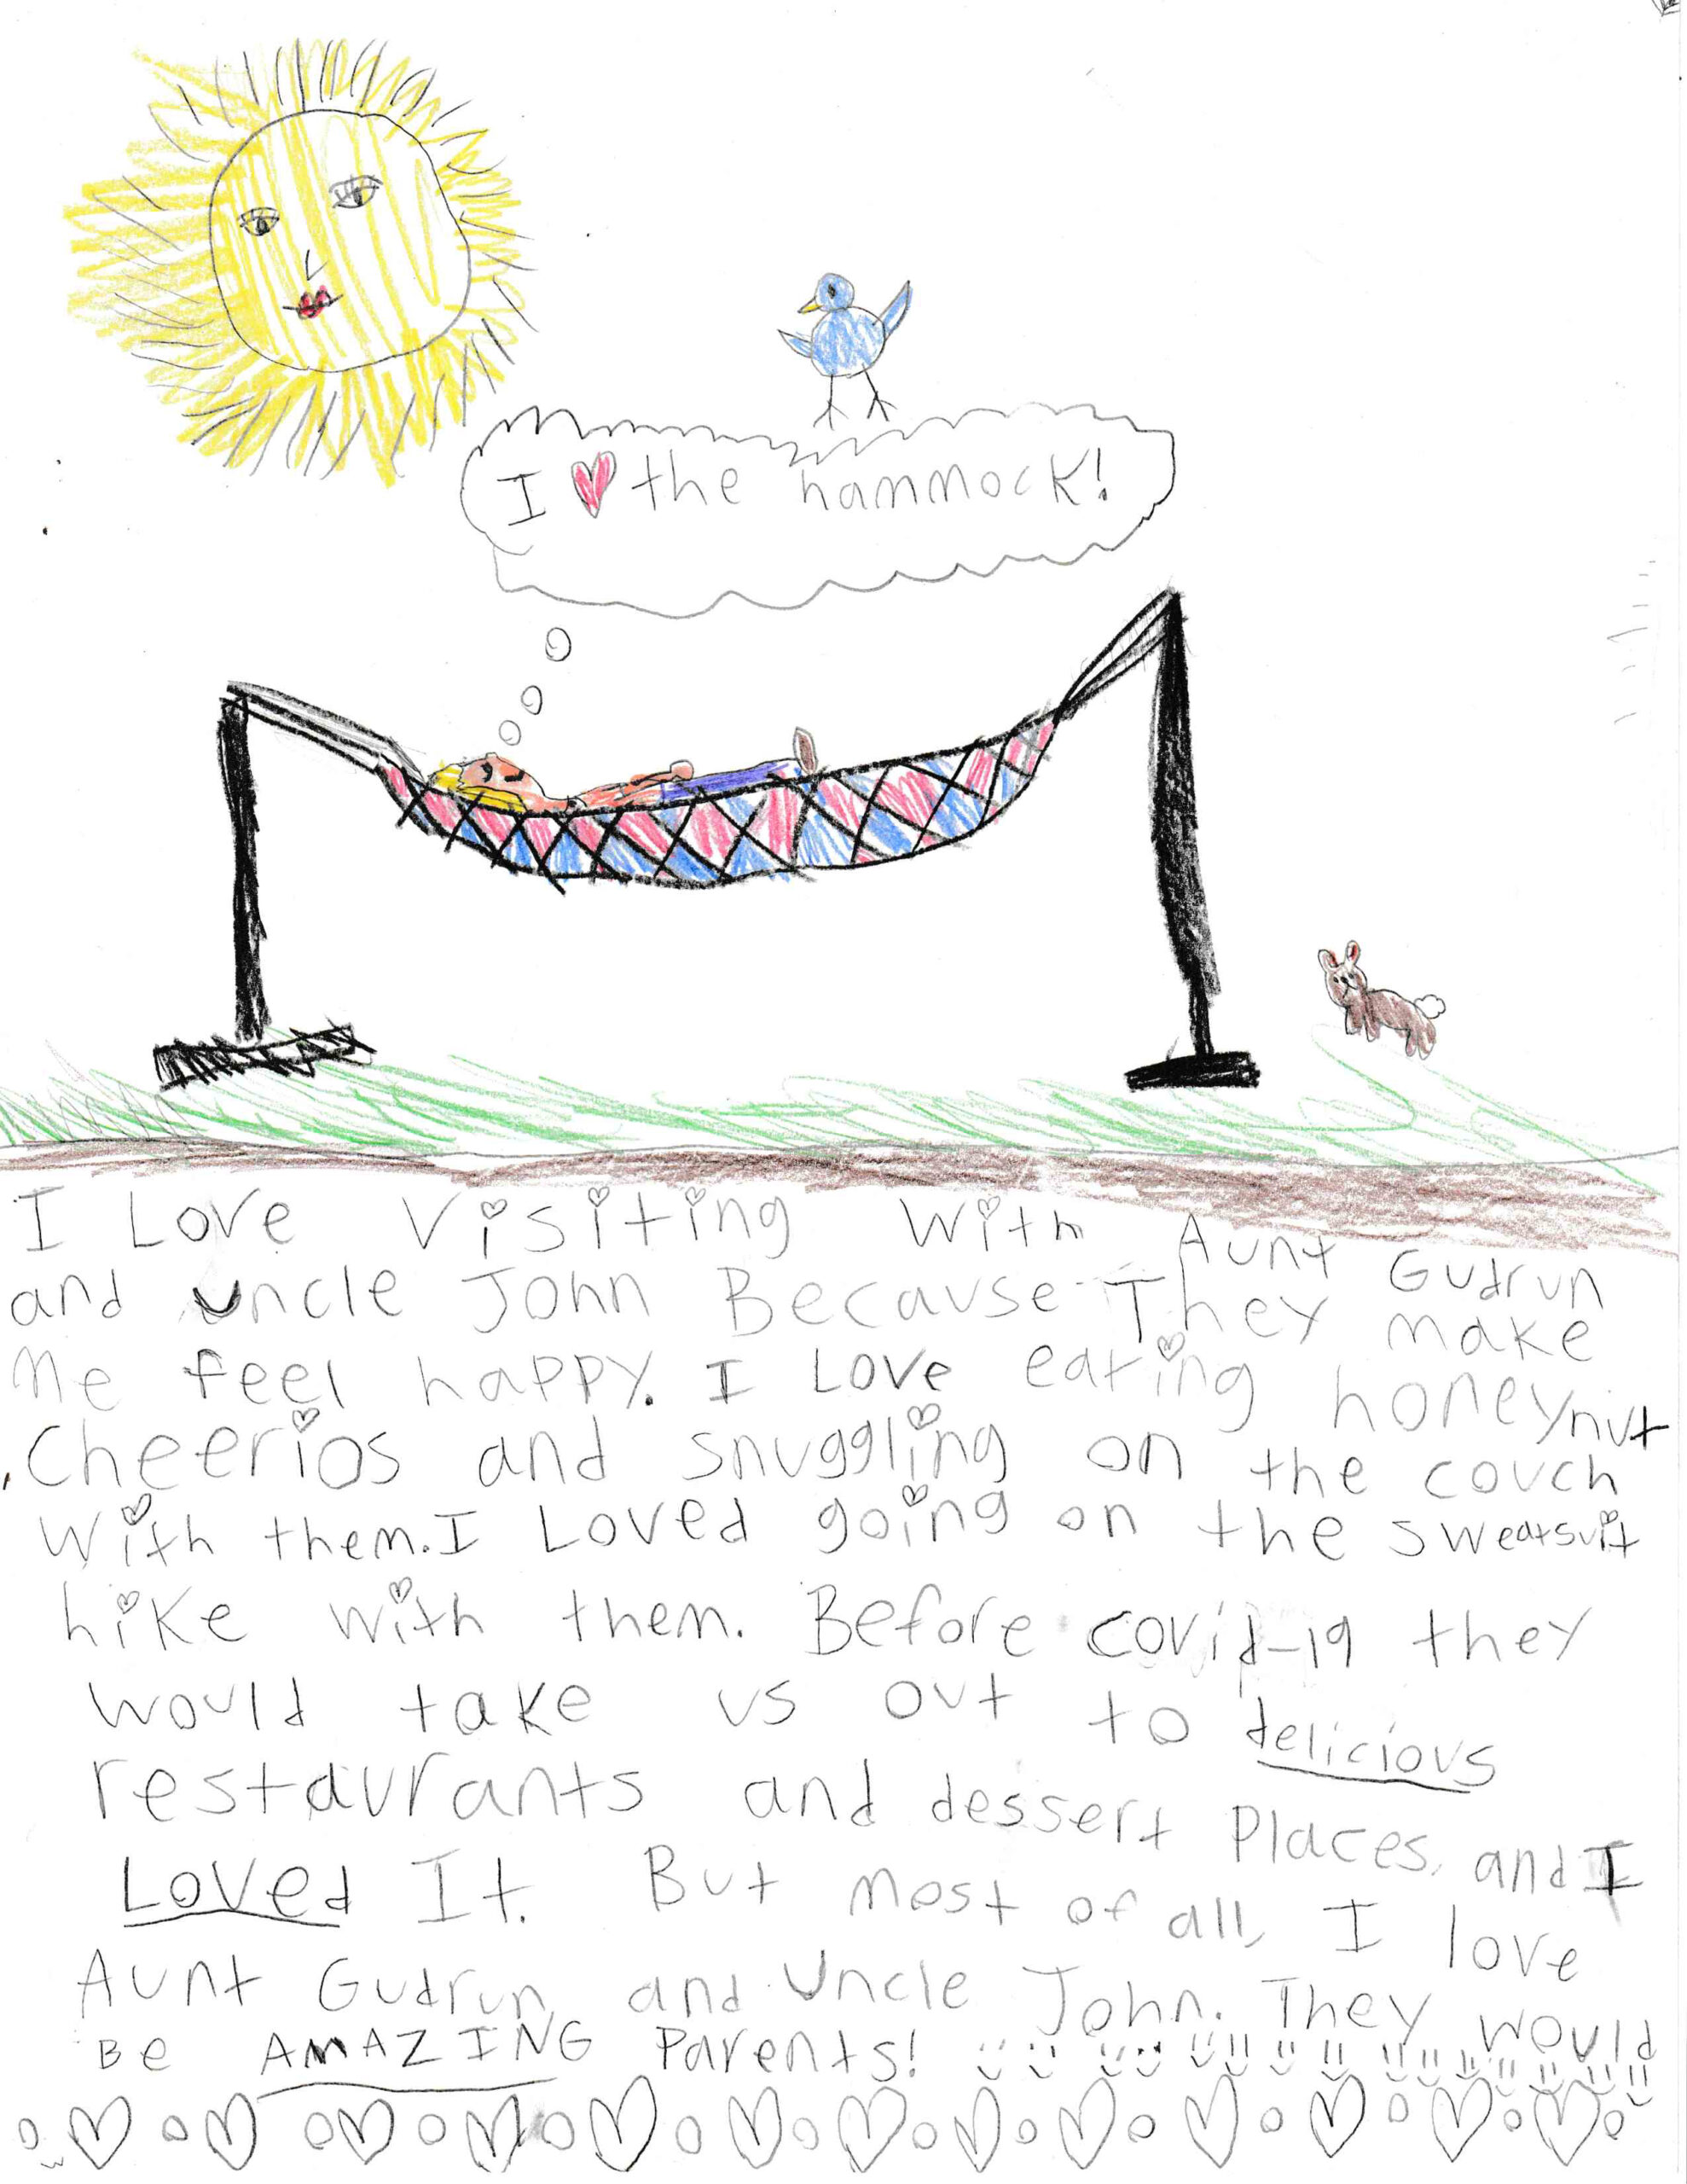 I ♥ the hammock!
I Love visiting with Aunt Gudrun
and uncle John Because They make
me feel happy. I Love eating honeynut
Cheerios and snuggling on the couch
with them. I Loved going on the sweatsuit
hike with them. Before covid-19 they
would take us out to delicious
restaurants and dessert Places, and I
Loved It. But most of all, I love
Aunt Gudrun and Uncle John. They would
Be AMAZING Parents!